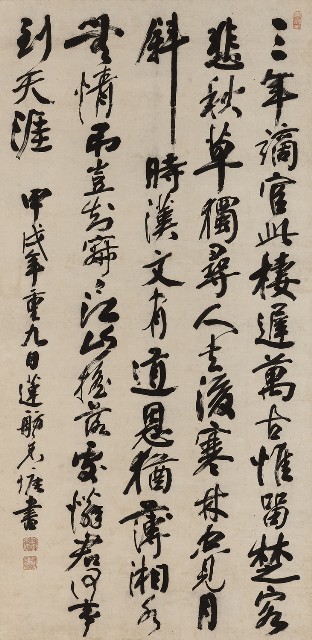 三年謫官此棲遲萬古惟留楚客
悲秋草獨尋人去後寒林空見月
斜時漢文有道恩猶薄湘水
無情弔豈知寂〻江山搖落處憐君何事
到天涯
甲戌年重九日蓮舫 書